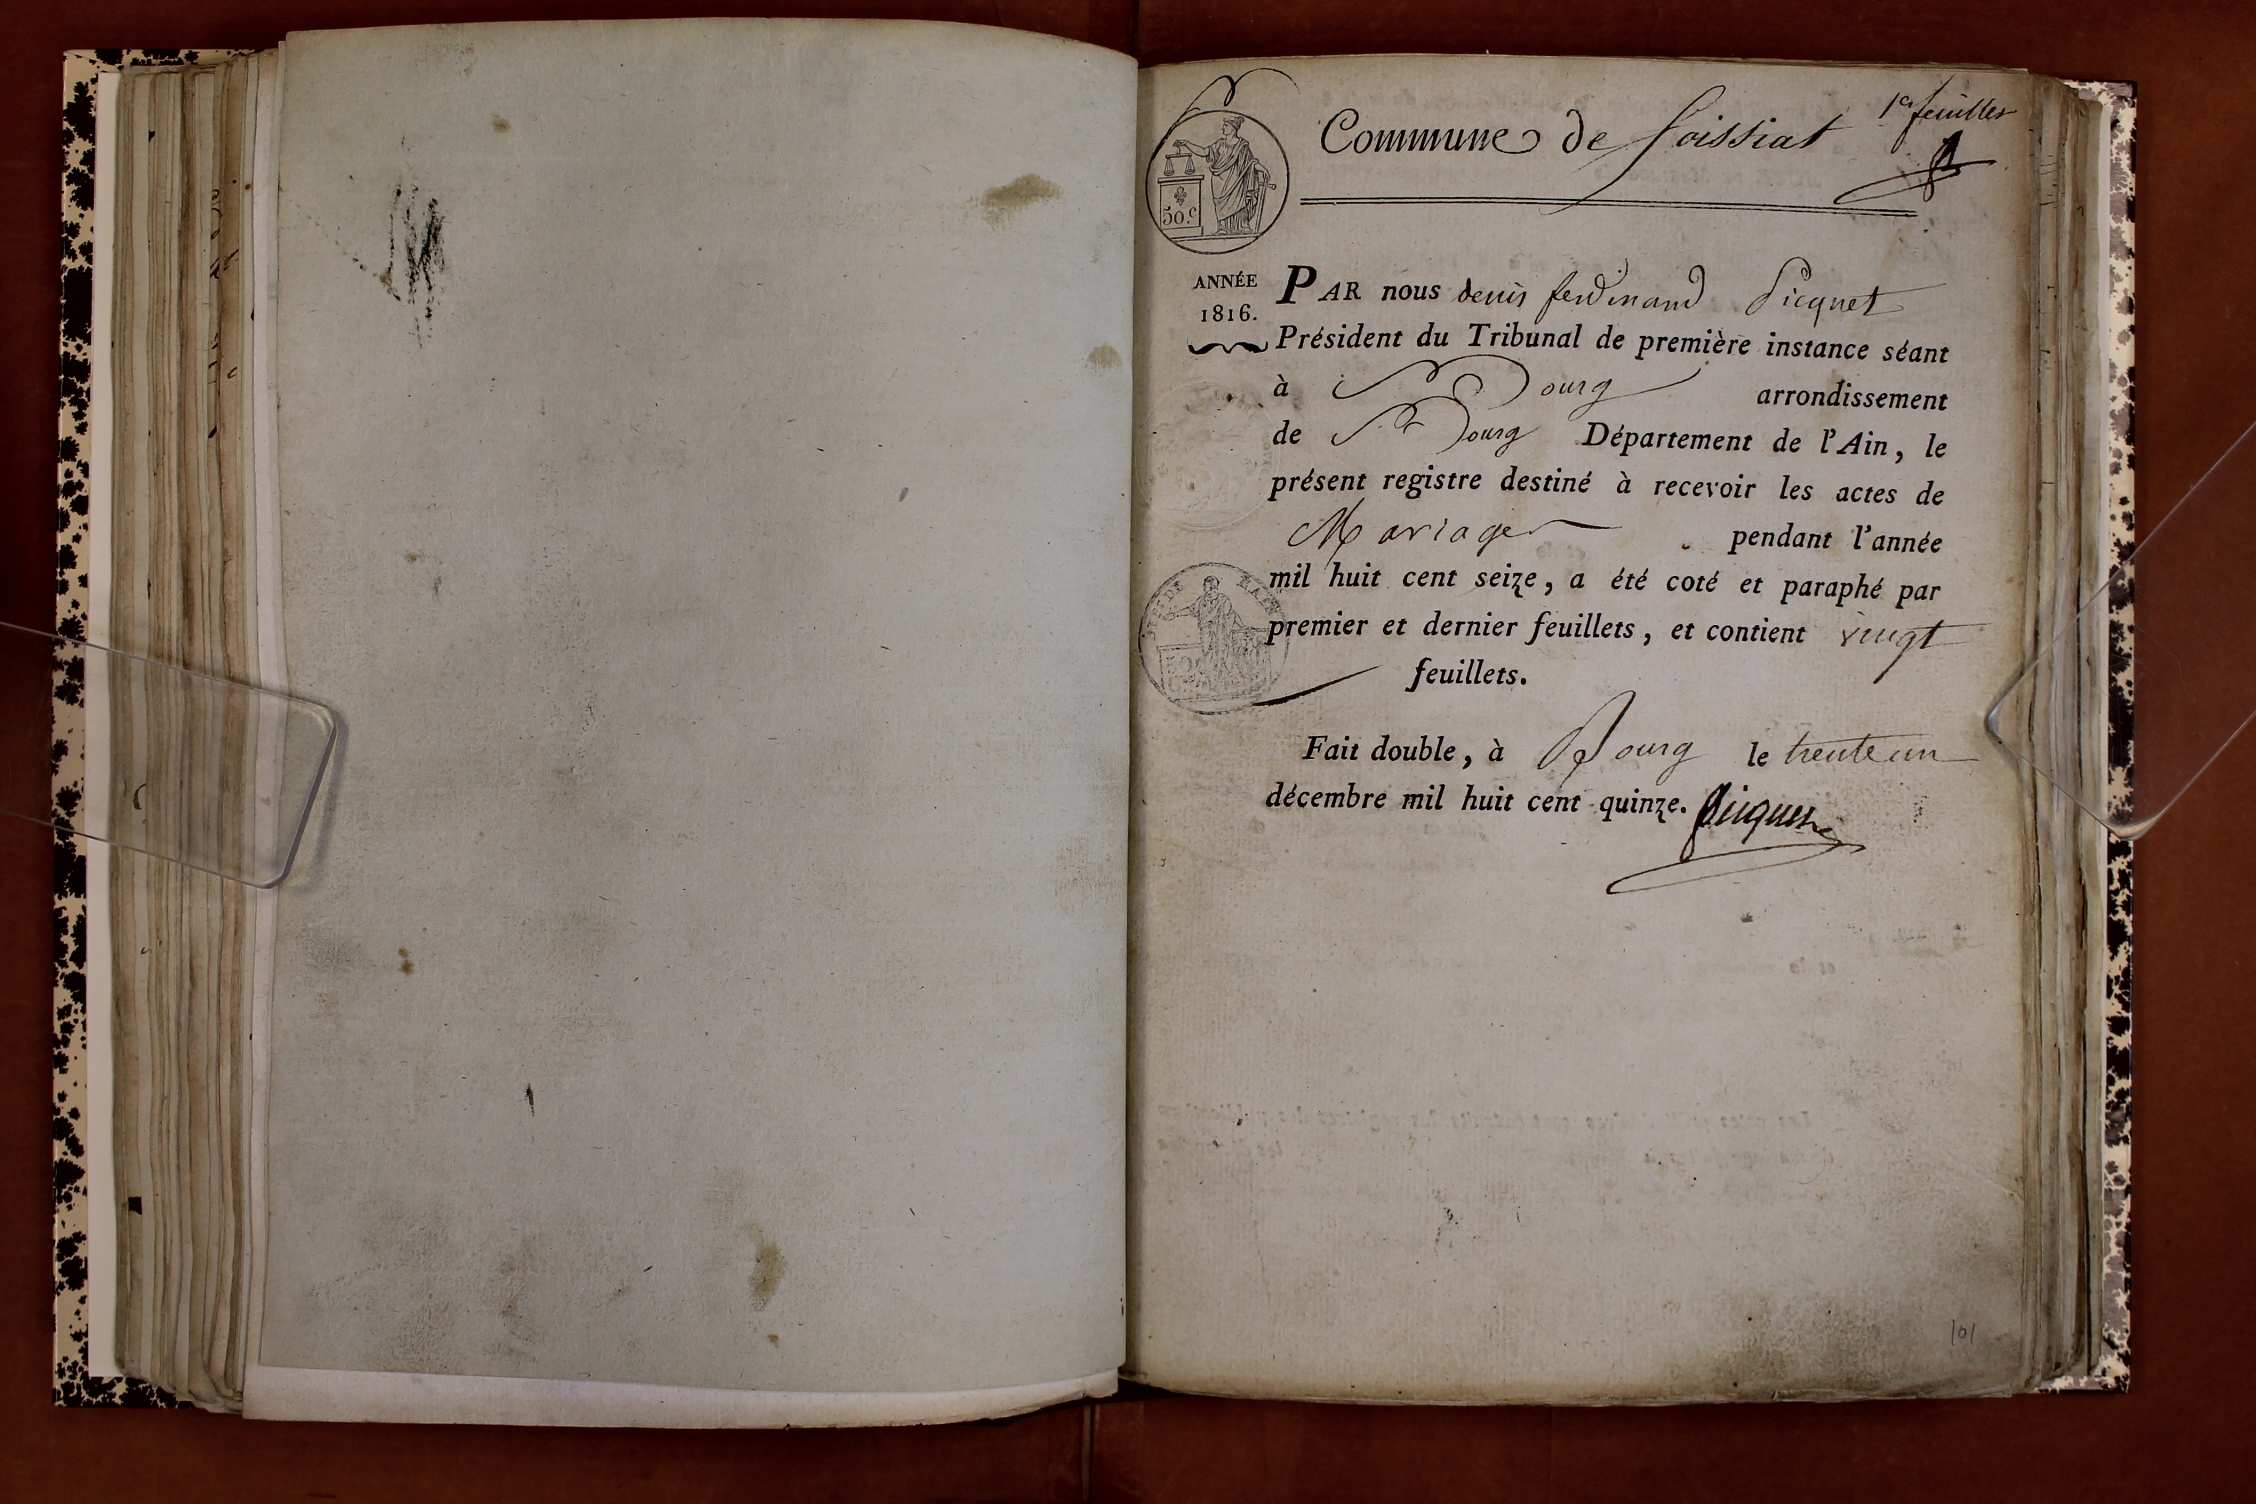 1er feuillet
Commune de Foissiat
50.c
ANNÉE
1816.
PAR nous denis ferdinand Picquet
Président du Tribunal de première instance séant
à Bourg arrondissement
de Bourg Département de l'Ain, le
présent registre destiné à recevoir les actes de
Mariages pendant l'année
mil huit cent seize, a été coté et paraphé par
premier et dernier feuillets, et contient vingt
feuillets.
Fait double, à Bourg le trente un
décembre mil huit cent quinze. Picquet
101